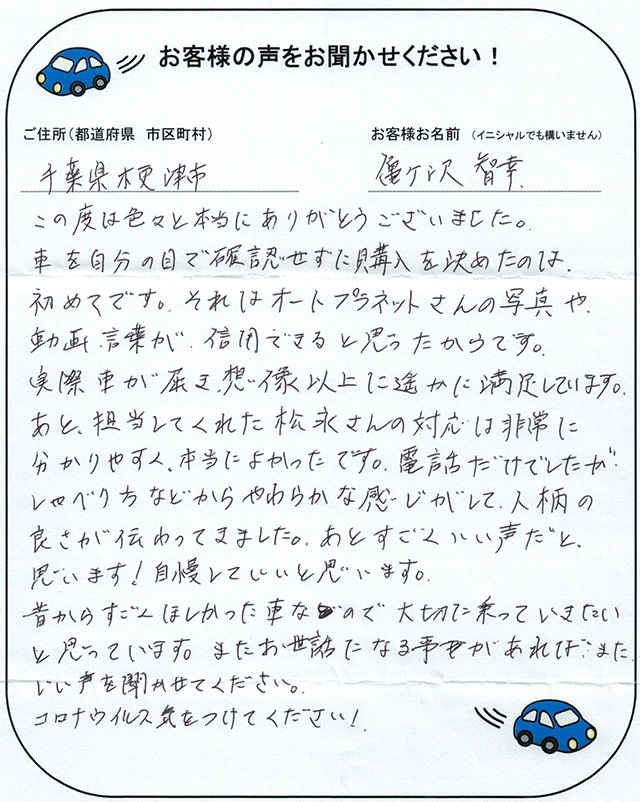 お客様の声をお聞かせください！
ご住所（都道府県　市区町村）
お客様お名前　（イニシャルでも構いません）
千葉県木更津市
亀ケ沢 智幸
この度は色々と本当にありがとうございました。
車を自分の目で確認せずに購入を決めたのは、
初めてです。それはオートプラネットさんの写真や、
動画、言葉が、信用できると思ったからです。
実際車が届き、想像以上に遥かに満足しています。
あと、担当してくれた松永さんの対応は非常に
分かりやすく、本当によかったです。電話だけでしたが
しゃべり方などからやわらかな感じがして、人柄の
良さが伝わってきました。あとすごくいい声だと、
思います！自慢していいと思います。
昔からすごくほしかった車なので大切に乗っていきたい
と思っています。またお世話になる事があれば、また、
いい声を聞かせてください。
コロナウイルス気をつけてください！